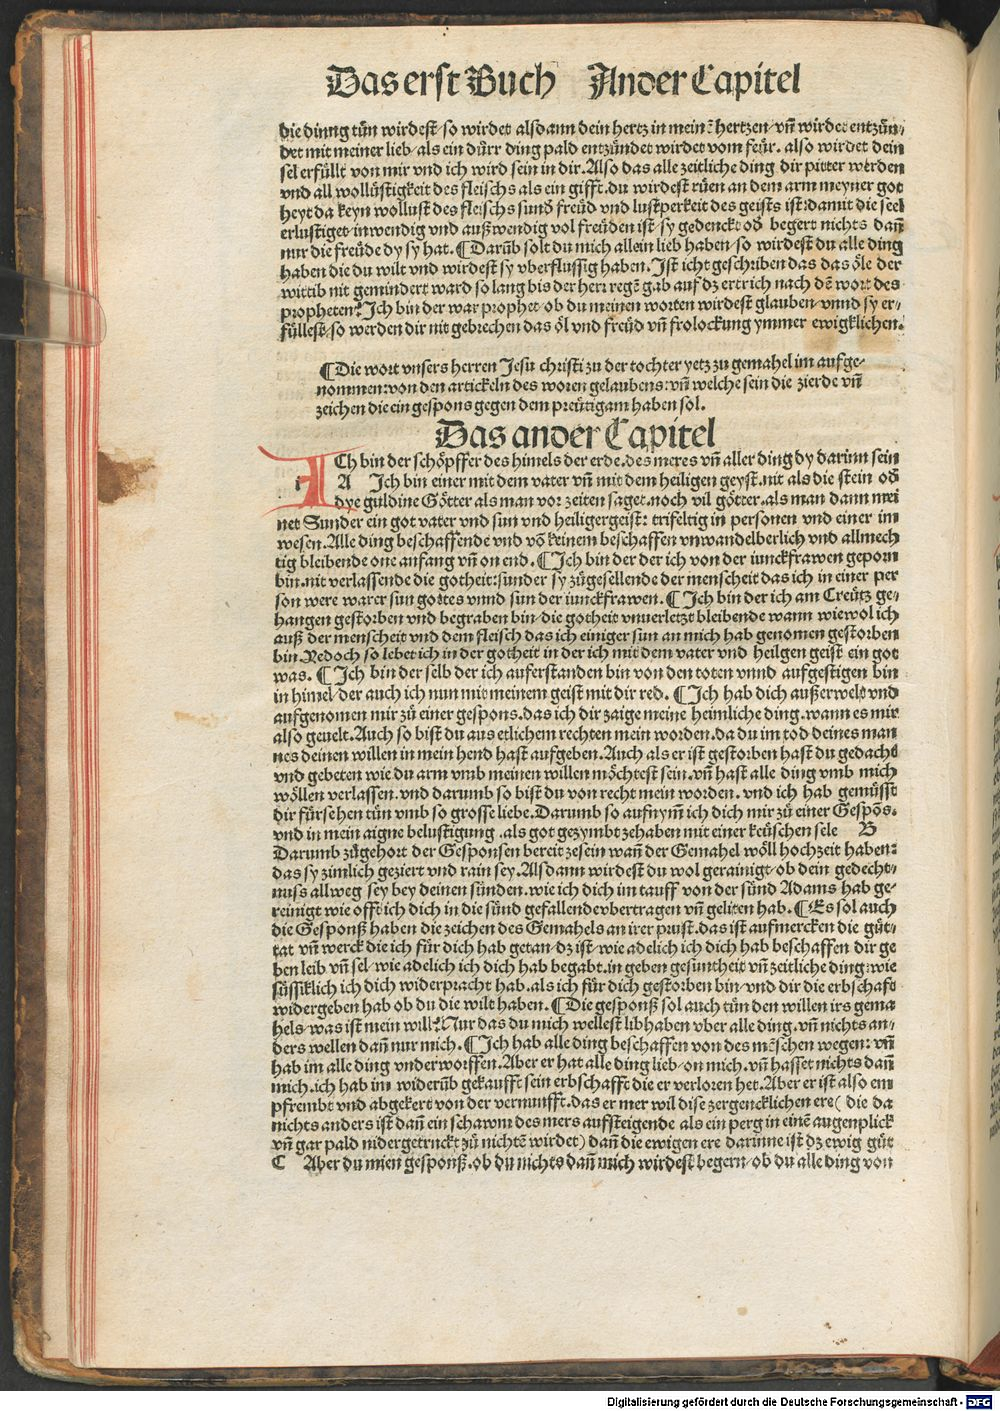 Das erst Buch Ander Capitel
die dinng tůn wirdest/so wirdet alsdann dein hertz in mein̄ē hertzen/vn̄ wirdet entzün/
det mit meiner lieb/als ein dürr ding pald entzündet wirdet vom feür. also wirdet dein
sel erfüllt von mir vnd ich wird sein in dir.Also das alle zeitliche ding dir pitter werden
vnd all wollüstigkeit des fleischs als ein gifft.du wirdest rüen an dem arm meyner got
heyt da keyn wollust des fleischs sund freüd vnd lustperkeit des geists ist:damit die seel
erlustiget inwendig vnd außwendig vol freüden ist/sy gedenckt od̄ begert nichts dan̄
nur die freüde dy sy hat.¶Darūb solt du mich allein lieb haben/so wirdest du alle ding
haben die du wilt vnd wirdest sy vberflussig haben.Ist icht geschriben das das öle der
wittib nit gemindert ward so lang bis der herr regē gab auf dz ertrich nach dē wort des
propheten?Ich bin der war prophet/ob du meinen worten wirdest glauben/vnnd sy er/
füllest/so werden dir nit gebrechen das öl vnd freüd vn̄ frolockung ymmer ewigklichen.
¶Die wort vnsers herren Jesu christi zu der tochter yetz zu gemahel im aufge-
nommen:von den artickeln des woren gelaubens:vn̄ welche sein die zierde vn̄
zeichen die ein gespons gegen dem preütigam haben sol.
Das ander Capitel
Ch bin der schöpffer des himels der erde.des meres vn̄ aller ding dy darinn sein
i A Ich bin einer mit dem vater vn̄ mit dem heiligen geyst.nit als die stein od̄
dye guldine Götter als man vor zeiten saget.noch vil götter.als man dann mei
net Sunder ein got vater vnd sun vnd heiligergeist: trifeltig in personen vnd einer im
wesen.Alle ding beschaffende vnd vō keinem beschaffen vnwandelberlich vnd allmech
tig bleibende one anfang vn̄ on end.¶Ich bin der der ich von der iunckfrawen geporn
bin.nit verlassende die gotheit:sunder sy zůgesellende der menscheit das ich in einer per
son were warer sun gottes vnnd sun der iunckfrawen.¶Ich bin der ich am Creütz ge/
hangen gestorben vnd begraben bin/die gotheit vnuerletzt bleibende wann wiewol ich
auß der menscheit vnd dem fleisch das ich einiger sun an mich hab genomen gestorben
bin.Yedoch so lebet ich in der gotheit in der ich mit dem vater vnd heilgen geist ein got
was.¶Ich bin der selb der ich auferstanden bin von den toten vnnd aufgestigen bin
in himel/der auch ich nun mit meinem geist mit dir red.¶Ich hab dich außerwelt vnd
aufgenomen mir zů einer gespons.das ich dir zaige meine heimliche ding.wann es mir
also geuelt.Auch so bist du aus etlichem rechten mein worden.da du im tod deines man
nes deinen willen in mein hend hast aufgeben.Auch als er ist gestorben hast du gedacht
vnd gebeten wie du arm vmb meinen willen möchtest sein.vn̄ hast alle ding vmb mich
wöllen verlassen.vnd darumb so bist du von recht mein worden.vnd ich hab gemüsst
dir fürsehen tůn vmb so grosse liebe.Darumb so aufnym̄ ich dich mir zů einer Gespōs.
vnd in mein aigne belustigung.als got gezymbt zehaben mit einer keüschen sele B
Darumb zůgehort der Gesponsen bereit zesein wan̄ der Gemahel wöll hochzeit haben:
das sy zimlich geziert vnd rain sey.Alsdann wirdest du wol gerainigt/ob dein gedecht/
nuss allweg sey bey deinen sünden.wie ich dich im tauff von der sünd Adams hab ge/
reinigt wie offt ich dich in die sünd gefallende vbertragen vn̄ geliten hab.¶Es sol auch
die Gesponß haben die zeichen des Gemahels an irer prust.das ist aufmercken die gůt/
tat vn̄ werck die ich für dich hab getan/dz ist/wie adelich ich dich hab beschaffen dir ge
ben leib vn̄ sel/wie adelich ich dich hab begabt.in geben gesuntheit vn̄ zeitliche ding:wie
süssiklich ich dich widerpracht hab.als ich für dich gestorben bin/vnd dir die erbschaft
widergeben hab ob du die wilt haben.¶Die gesponß sol auch tůn den willen irs gema
hels/was ist mein will?Nur das du mich wellest libhaben vber alle ding.vn̄ nichts an/
ders wellen dan̄ nur mich.¶Ich hab alle ding beschaffen von des mēschen wegen:vn̄
hab im alle ding vnderworffen.Aber er hat alle ding lieb/on mich.vn̄ hasset nichts dan̄
mich.ich hab im widerūb gekaufft sein erbschafft die er verloren het.Aber er ist also em
pfrembt vnd abgekert von der vernunfft.das er mer wil dise zergencklichen ere( die da
nichts anders ist dan̄ ein schawm des mers aufsteigende als ein perg in einē augenplick
vn̄ gar pald nidergetruckt zů nichtē wirdet)dan̄ die ewigen ere darinne ist dz ewig gůt
C Aber du mien gesponß.ob du nichts dan̄ mich wirdest begern/ob du alle ding von
Digitalisierung gefördert durch die Deutsche Forschungsgemeinschaft - DFG